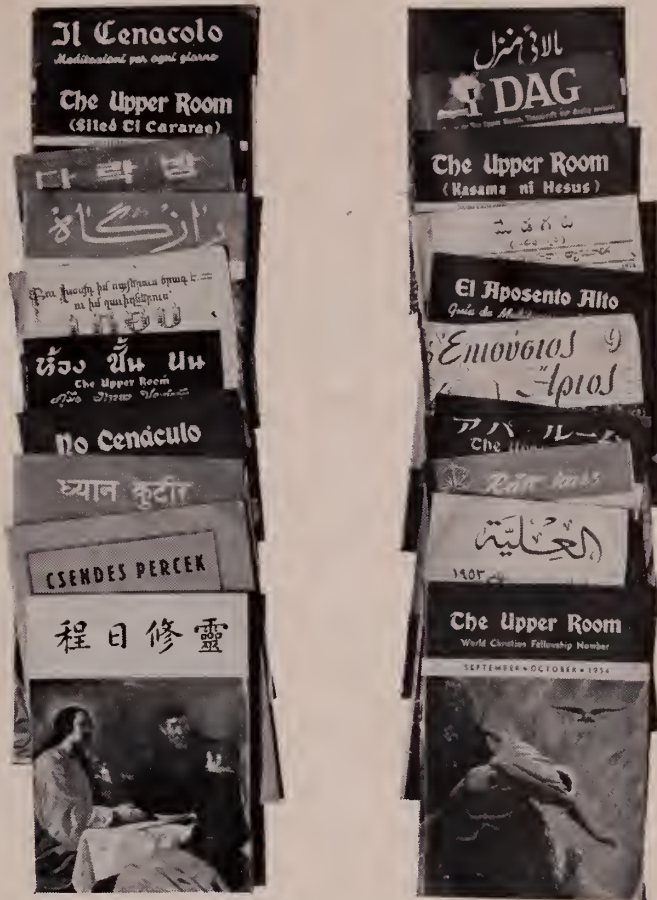 Il Cenacolo
Meditazioni per ogni giorno
The Upper Room
(Siled Ti Cararag)
다락방
رازگاه
ห้อง ชั้น บน
The Upper Room
No Cenáculo
ध्यान कुटीर
CSENDES PERCEK
程日修靈
بالائی منزل
I DAG
The Upper Room
(Kasama ni Hesus)
El Aposento Alto
Guía de
Επιούσιος
Άρτος
アパ ルー
The
العلية
١٩٥٣
The Upper Room
World Christian Fellowship Number
SEPTEMBER • OCTOBER • 1954